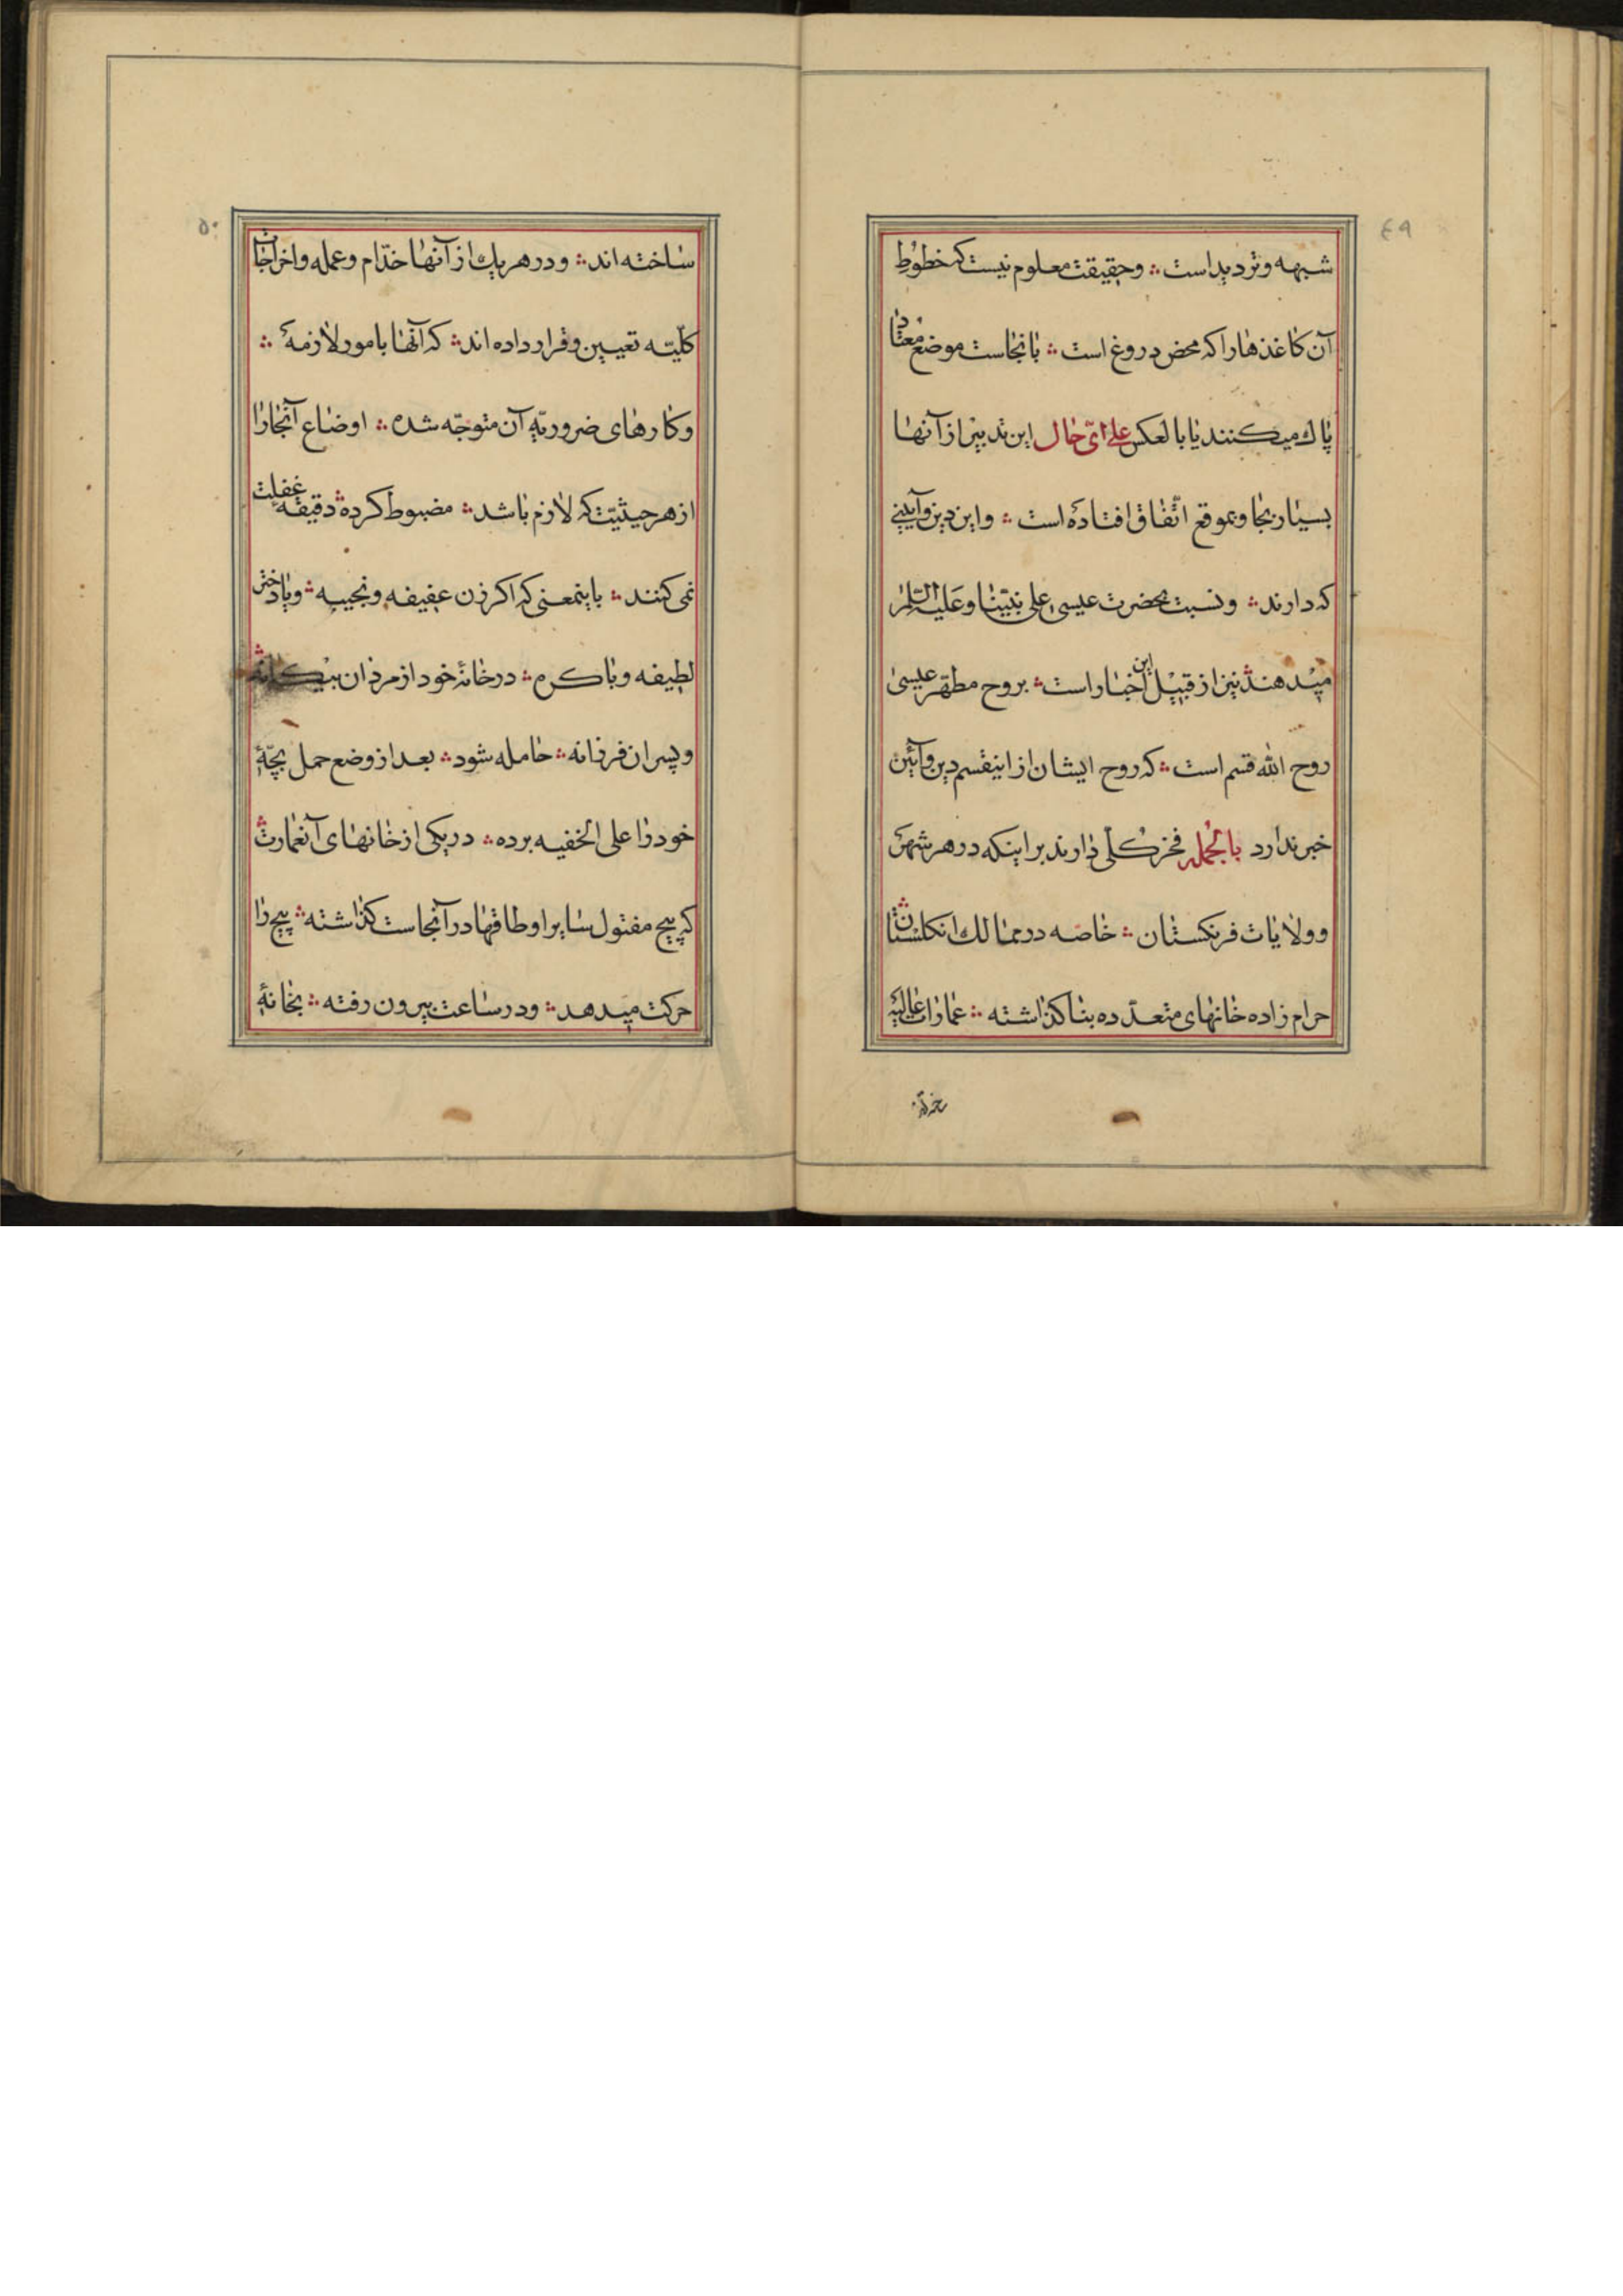 ٤٩
شبهه وتردید است ؞ وحقیقت معلوم نیست که خطوط
آن کاغذها را که محض دروغ است ؞ بانجاست موضع معتاد
پاک میکنند یا بالعکس علی ایّ حال این تدبیر از آنها
بسیار بجا و بموقع اتّفاق افتاده است ؞ واین دین وآیینی
که دارند ؞ ونسبت بحضرت عیسی علی نبیّنا وعلیه السّلام
میدهند ؞ نیز از قبیل این اخبار است ؞ بروح مطهّر عیسی
روح الله قسم است ؞ که روح ایشان از اینقسم دین وآئین
خبر ندارد بالجمله فخر کلّی دارند بر اینکه در هر شهری
و ولایات فرنکستان ؞ خاصّه در ممالک انکلستان ؞
حرام زاده خانهای متعدّده بنا کذاشته ؞ عمارات عالیهٔ
٥٠
ساخته اند ؞ ودر هر یک از آنها خدّام وعمله واخراجات
کلّیّه تعیین وقرار داده اند ؞ که آنها بامور لازمهٔ ؞
وکارهای ضروریّهٔ آن متوجّه شده ؞ اوضاع آنجا را
از هر حیثیّت که لازم باشد ؞ مضبوط کرده ؞ دقیقهٔ غفلت
نمی کنند ؞ باینمعنی که اکر زن عفیفه ونجیبه ؞ ویا دختر
لطیفه وباکره ؞ در خانهٔ خود از مردان بیکانه ؞
وپسران فرزانه ؞ حامله شود ؞ بعد از وضع حمل بچّهٔ
خود را علی الخفیه برده ؞ در یکی از خانهای آنعمارت ؞
که پیچ مفتول سایر اوطاقها در آنجاست کذاشته ؞ پیچ را
حرکت میدهد ؞ ودر ساعت بیرون رفته ؞ بخانهٔ